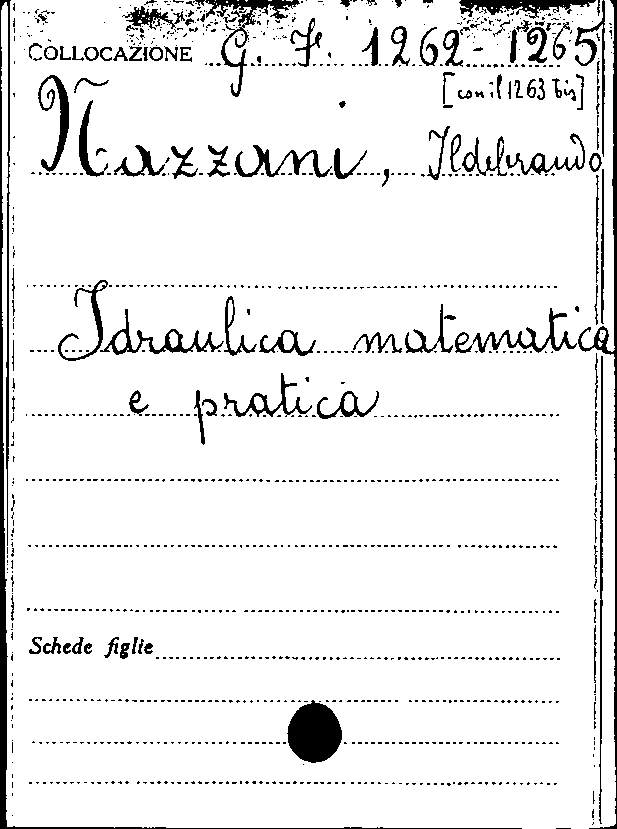 COLLOCAZIONE G. F. 1262-1265
[con il 1263 bis]
Nazzani, Ildebrando
Idraulica matematica
e pratica
Schede figlie